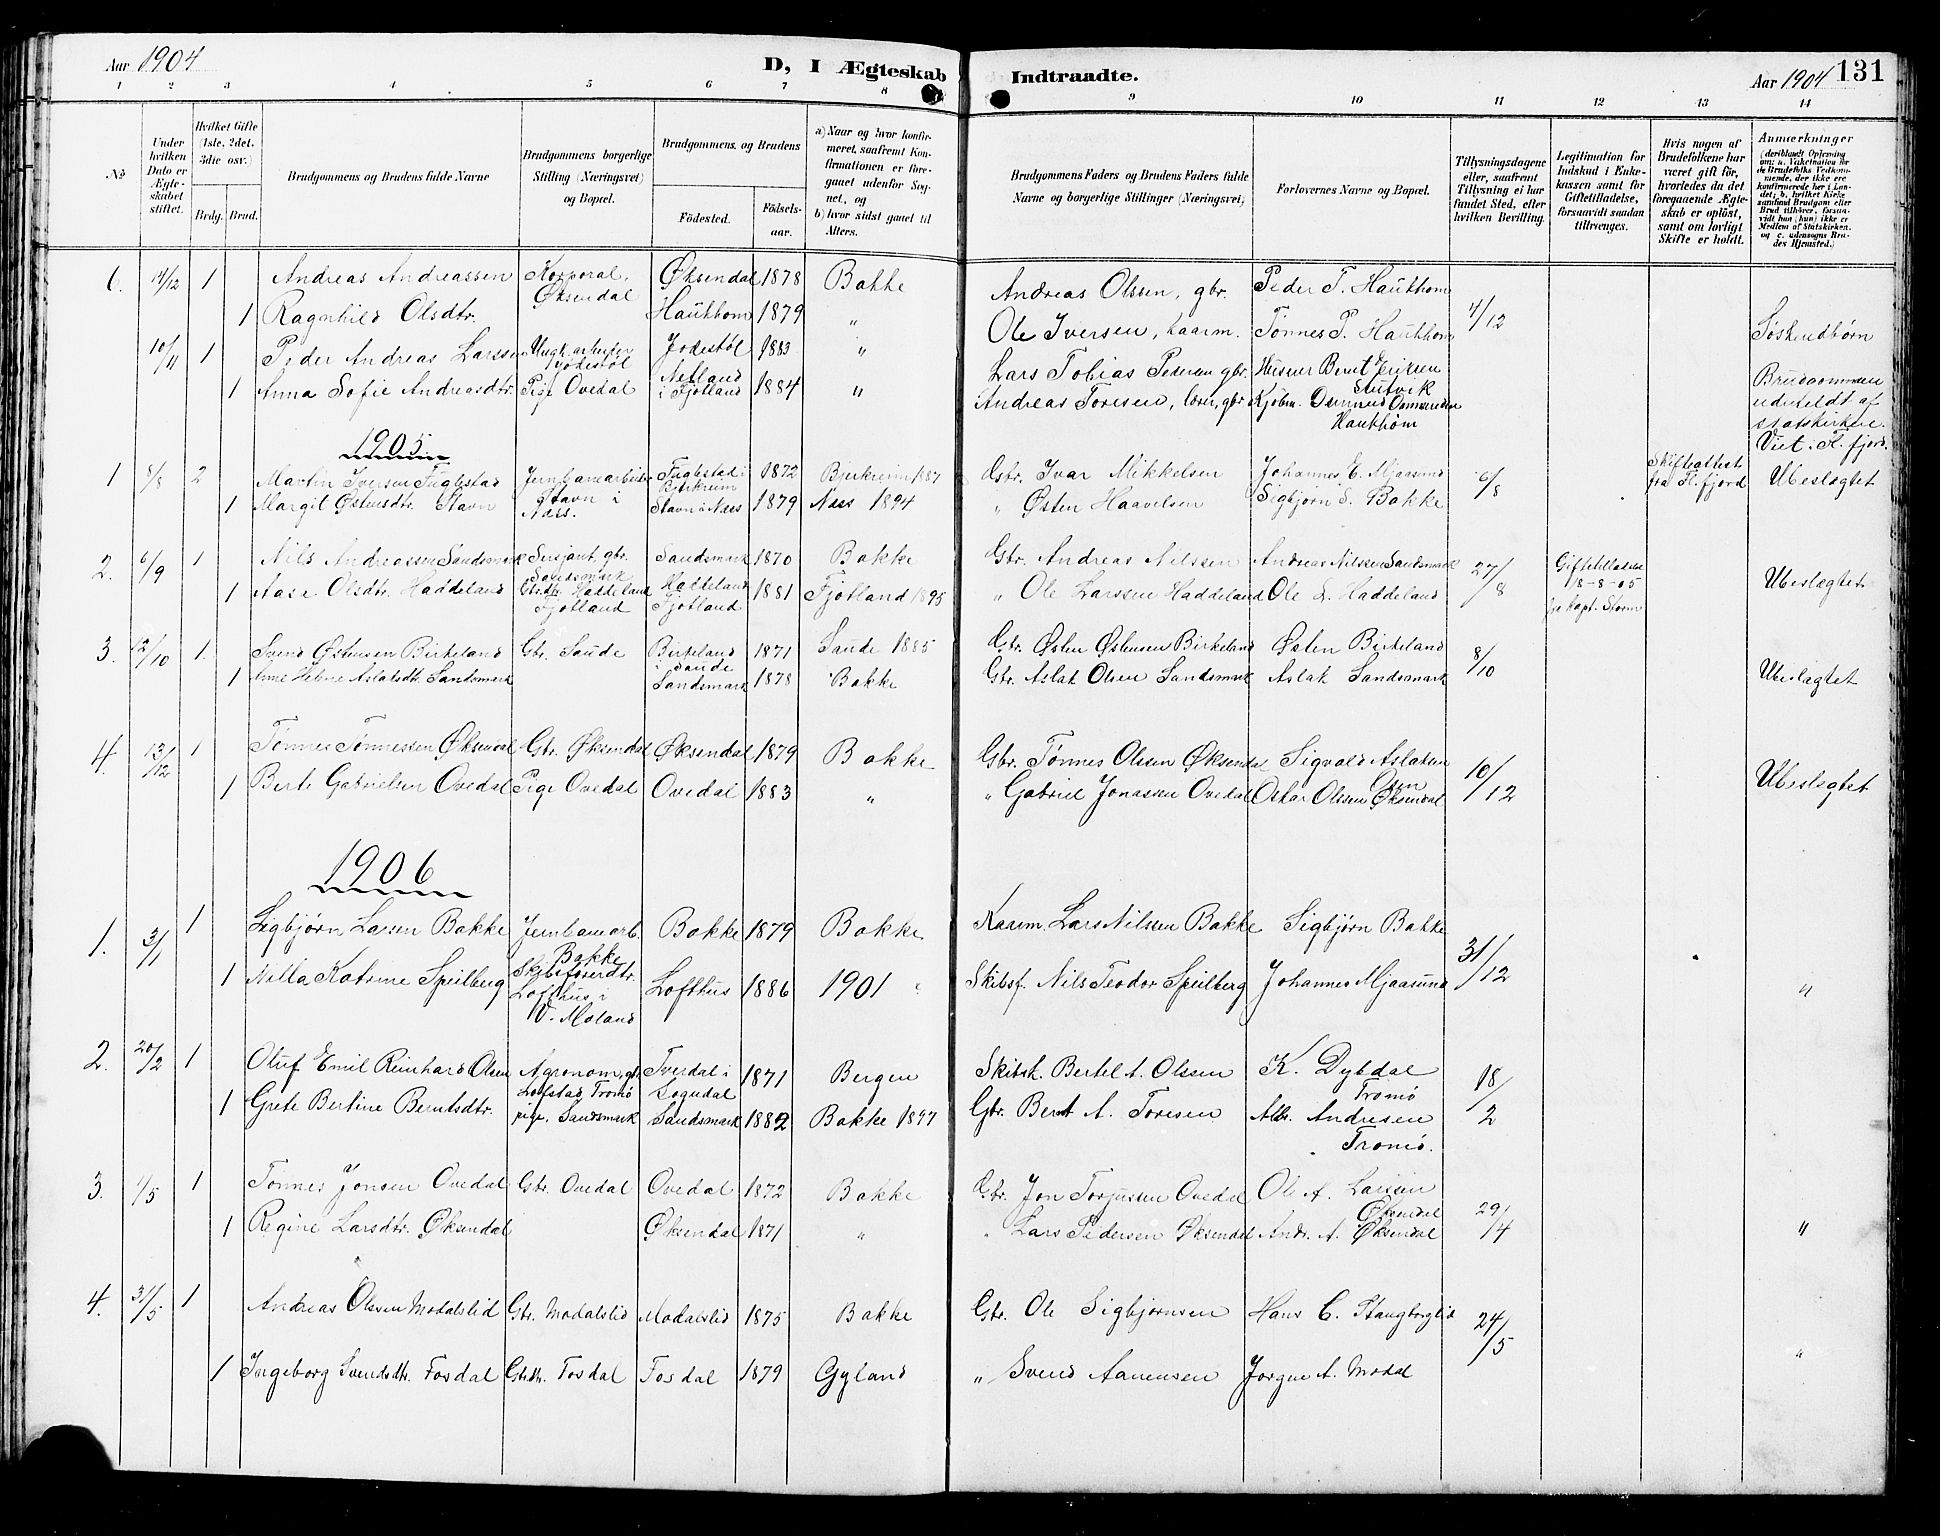 Aar 1904
D, I Ægteskab Indtraadte.
Aar 1904 131
1 2 3 4 5 6 7 8 9 10 11 12 13 14
No
Under hvilken Dato er Ægteskabet stiftet.
Hvilket Gifte (1ste, 2det, 3die osv.)
Brdg. Brud.
Brudgommens og Brudens fulde Navne
Brudgommens borgerlige Stilling (Næringsvei) og Bopæl.
Brudgommens og Brudens
Födested.
Födselsaar.
a) Naar og hvor konfirmeret, saafremt Konfirmationen er foregaaet udenfor Sognet, og
b) hvor sidst gaaet til Alters.
Brudgommens Faders og Brudens Faders fulde Navne og borgerlige Stillinger (Næringsvei)
Forlovernes Navne og Bopæl.
Tillysningsdagene eller, saafremt Tillysning ei har fundet Sted, efter hvilken Bevilling.
Legitimation for Indskud i Enkekassen samt for Giftetilladelse, forsaavidt saadan tiltrænges.
Hvis nogen af Brudefolkene har været gift för, hvorledes da det foregaaende Ægteskab er oplöst, samt om lovligt Skifte er holdt.
Anmærkninger
6. 14/12 1 Andreas Andreassen Korporal, Øksendal Øksendal 1878 Bakke Andreas Olssen, gbr. Peder T. Haukhom 4/12
1 Ragnhild Olsdtr. Haukhom 1879 " Ole Iversen, kaarm. Tønnes P. Haukhom Søskendbørn
10/11 1 Peder Andreas Larssen Jodestøl Jodestøl 1883 " Lars Tobias Pedersen gbr. Husmr Bernt Erikssen
1 Anna Sofie Andreasdtr. Pige Ovedal Netland i Fjotland 1884 " Andreas Toresen, gbr. Kjøbm. Haukhom
Brudgommen udmeldt af statskirken. Viet i Fl. fjord.
1905
1 8/8 2 Martin Iversen Fuglestad Jernbanearbeider Fuglestad i Bjerkreim 1872 Bjerkreim 1887 Gbr. Ivar Mikkelsen Johannes E. Mjaasund 6/8 Skifteattest fra Fl. fjord Ubeslægtet
1 Margit Østensdtr. Stavn Stavn i Næs. Stavn i Næs 1879 Næs 1894 " Østen Haavelsen Sigbjørn L. Bakke
2. 6/9 1 Nils Andreassen Sandsmark Sersjant, gbr. Sandsmark Sandsmark 1870 Bakke Gbr. Andreas Nilssen Andreas Nilssen Sandsmark 27/8 Giftetilladelse 18-8-05 fra Kapt. Storm
1 Aase Olsdtr. Haddeland Gbrdtr. Haddeland Fjotland Haddeland Fjotland 1881 Fjotland 1895 " Ole Larssen Haddeland Ole L. Haddeland Ubeslægtet
3. 12/10 1. Svend Østensen Birkeland Gbr. Saude Birkeland i Saude 1871 Saude 1885 Gbr. Østen Østensen Birkeland Østen Birkeland 8/10
1 Anne Helene Aslaksdtr. Sandsmark Sandsmark 1878 Bakke Gbr. Aslak Olsen Sandsmark Aslak Sandsmark Ubeslægtet
4. 13/12 1 Tønnes Tønnessen Øksendal Gbr. Øksendal Øksendal 1879 Bakke Gbr. Tønnes Olssen Øksendal Sigvald Aslaksen 10/12
1 Berte Gabrielsen Ovedal Pige Ovedal Ovedal 1883 " " Gabriel Jonassen Ovedal Oskar Olssen Øksendal Ubeslægtet
1906
1. 3/1 1 Sigbjørn Larsen Bakke Jernbanearb. Bakke Bakke 1879 Bakke Kaarm. Lars Nilssen Bakke Sigbjørn Bakke 31/12
1 Nilla Katrine Speilberg Skibsførerdtr. Lofthus i V. Moland Lofthus 1886 1901 " Skibsf. Nils Teodor Speilberg Johannes Mjaasund "
2. 20/2 1 Oluf Emil Reinhard Olsen Agronom, gbr. Lofstad, Tromø Tverdal i Sogndal 1871 Bergen Skibsk. Bertel A. Olssen K. Dybdal Tromø 18/2
1 Grete Bertine Berntsdtr. pige, Sandsmark Sandsmark 1882 Bakke 1897 Gbr. Bernt A. Toresen Andresen Tromø.
3. 1/5 1 Tønnes Jonsen Ovedal Gbr. Ovedal Ovedal 1872 Bakke Gbr. Jon Torjussen Ovedal Ole A. Larssen Øksendal 29/4
1 Regine Larsdtr. Øksendal Øksendal 1871 " " Lars Pedersen Øksendal Andr. A. Øksendal "
4. 31/5 1 Andreas Olssen Modalslid Gbr. Modalslid Modalslid 1875 Bakke Gbr. Ole Sigbjørnsen Hans C. Stangborglid 24/5
1 Ingeborg Svendsdtr. Fosdal Gbrdtr. Fosdal Fosdal 1879 Gyland " Svend Aanensen Jørgen A. Modal "